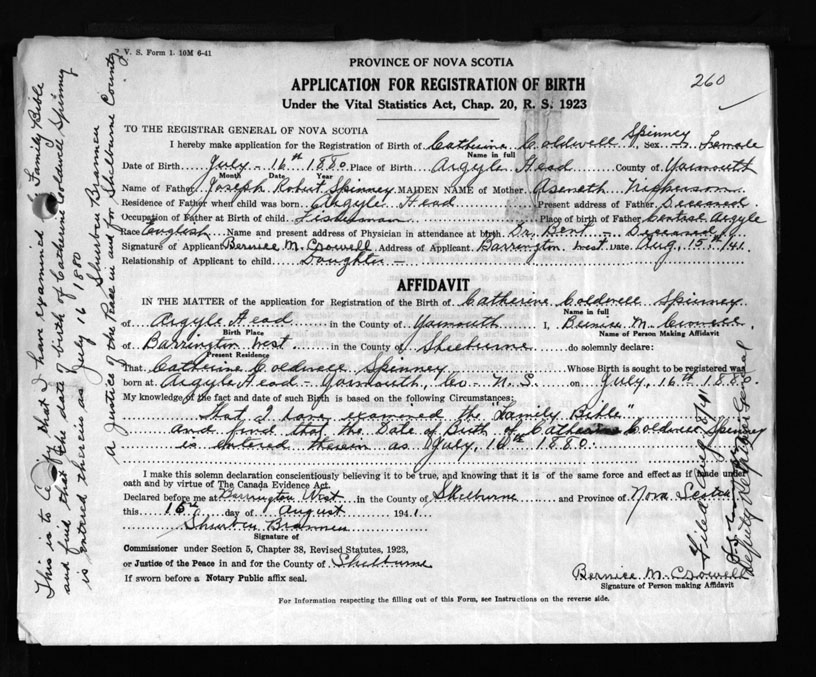 V. S. Form 1. 10M 6-41
PROVINCE OF NOVA SCOTIA
260
APPLICATION FOR REGISTRATION OF BIRTH
Under the Vital Statistics Act, Chap. 20, R. S. 1923
TO THE REGISTRAR GENERAL OF NOVA SCOTIA
I hereby make application for the Registration of Birth of Catherine Coldwell Spinney Sex Female
Name in full
Date of Birth July - 16th 1880 Place of Birth Argyle Head County of Yarmouth
Month Date Year
Name of Father Joseph Robert Spinney MAIDEN NAME of Mother Aseneth Nickerson
Residence of Father when child was born Argyle Head Present address of Father Deceased
Occupation of Father at Birth of child Fisherman Place of birth of Father Central Argyle
Race English Name and present address of Physician in attendance at birth Dr. Bent - Deceased
Signature of Applicant Bernice M. Crowell Address of Applicant Barrington West Date Aug. 15th/41
Relationship of Applicant to child Daughter -
AFFIDAVIT
IN THE MATTER of the application for Registration of the Birth of Catherine Coldwell Spinney
Name in full
of Argyle Head in the County of Yarmouth I, Bernice M. Crowell
Birth Place Name of Person Making Affidavit
of Barrington West in the County of Shelburne do solemnly declare:
Present Residence
That Catherine Coldwell Spinney Whose Birth is sought to be registered was
born at Argyle Head - Yarmouth, Co - N. S. on July, 16th 1880.
My knowledge of the fact and date of such Birth is based on the following Circumstances:
That I have examined the "Family Bible"
and find that the Date of Birth of Catherine Coldwell Spinney
is entered therein as July, 16th 1880.
I make this solemn declaration conscientiously believing it to be true, and knowing that it is of the same force and effect as if made under
oath and by virtue of The Canada Evidence Act.
Declared before me at Barrington West in the County of Shelburne and Province of Nova Scotia
this 15th day of August 1941
Shurben Brannen
Signature of
Commissioner under Section 5, Chapter 38, Revised Statutes, 1923,
or Justice of the Peace in and for the County of Shelburne
If sworn before a Notary Public affix seal.
Bernice M. Crowell
Signature of Person making Affidavit
For Information respecting the filling out of this Form, see Instructions on the reverse side.
This is to certify that I have examined "Family Bible
and find that the date of birth of Catherine Coldwell Spinney
is entered therein as July 16 1880
Shurben Brannen
a Justice of the Peace in and for Shelburne County.
Filed Aug 18/41
Deputy Registrar General